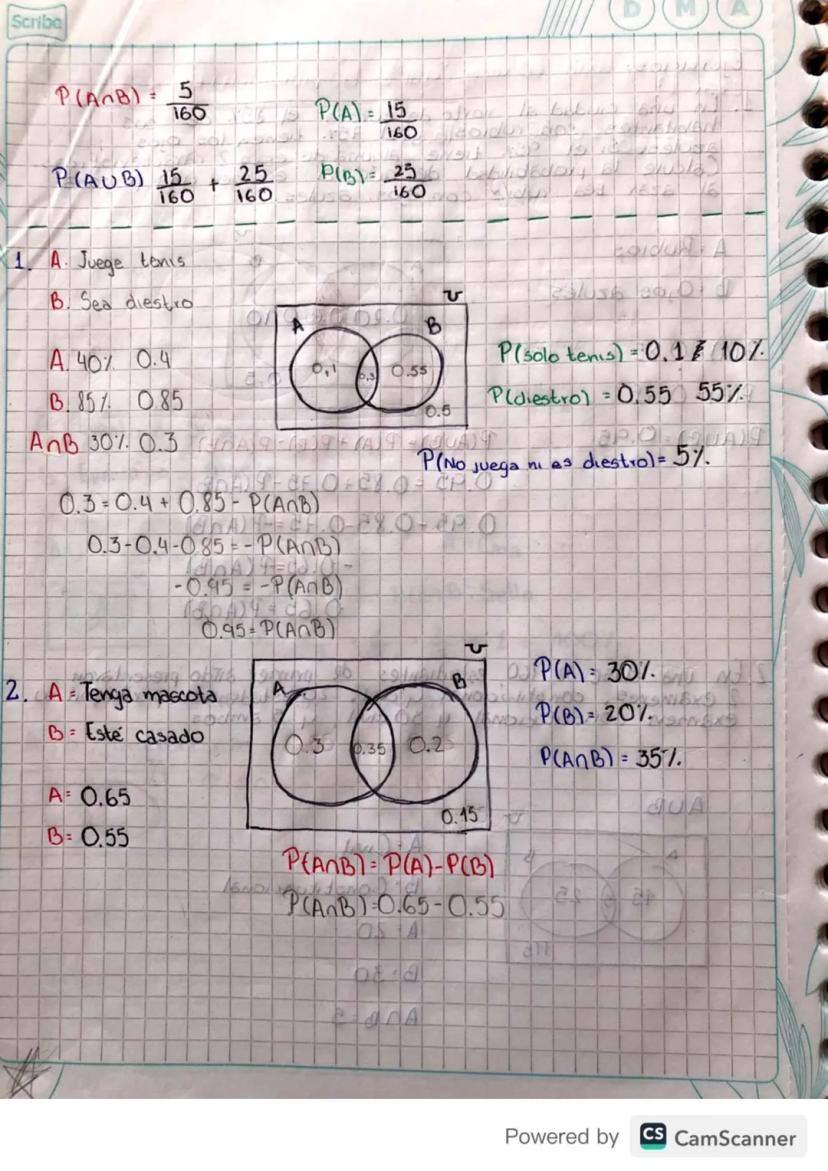 Scribe
D M A
P(A∩B) = 5/160
P(A) = 15/160
P(A∪B) 15/160 + 25/160
P(B) = 25/160
1. A. Juege tenis
B. Sea diestro
U
A B
0,1 0,3 0.55
0.5
A. 40% 0.4
B. 85% 0.85
A∩B 30% 0.3
P(solo tenis) = 0.1 10%
P(diestro) = 0.55 55%
P(No juega ni es diestro) = 5%
0.3 = 0.4 + 0.85 - P(A∩B)
0.3-0.4-0.85 = -P(A∩B)
-0.95 = -P(A∩B)
0.95 = P(A∩B)
2. A = Tenga mascota
B = Esté casado
A = 0.65
B = 0.55
U
A B
0.3 0.35 0.2
0.15
P(A) = 30%
P(B) = 20%
P(A∩B) = 35%
P(A∩B) = P(A)-P(B)
P(A∩B) = 0.65 - 0.55
Powered by CS CamScanner